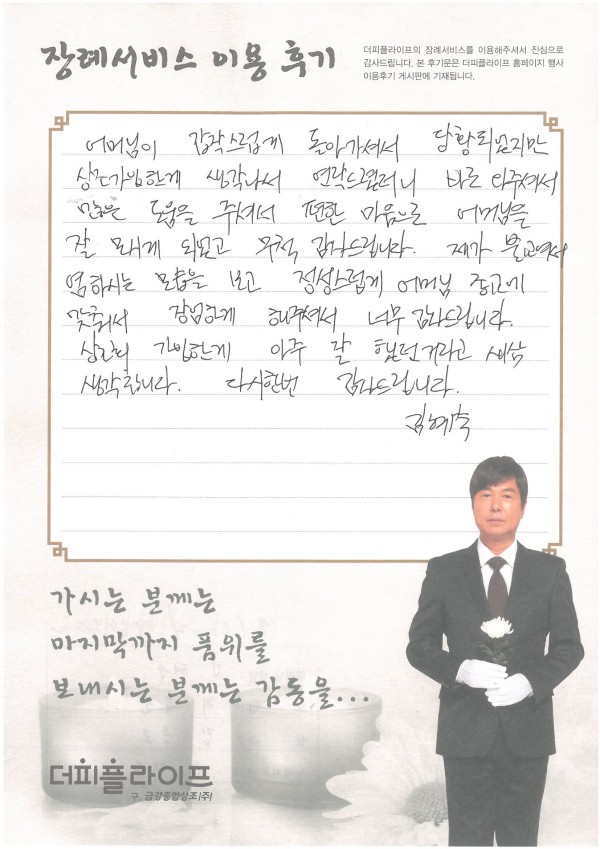 장례서비스 이용 후기
더피플라이프의 장례서비스를 이용해주셔서 진심으로
감사드립니다. 본 후기문은 더피플라이프 홈페이지 행사
이용후기 게시판에 기재됩니다.
어머님이 갑작스럽게 돌아가셔서 당황되었지만
상조가입한게 생각나서 연락드렸더니 바로 와주셔서
많은 도움을 주셔서 편한 마음으로 어머님을
잘 모시게 되었고 무척 감사드립니다. 제가 불교여서
염하시는 모습을 보고 정성스럽게 어머님 종교에
맞춰서 장엄하게 해주셔서 너무 감사드립니다.
가입한게 아주 잘 했던거라고 새삼
생각합니다. 다시한번 감사드립니다.
김예숙
가시는 분께는
마지막까지 품위를
보내시는 분께는 감동을...
더피플라이프
구. 금강종합상조(주)